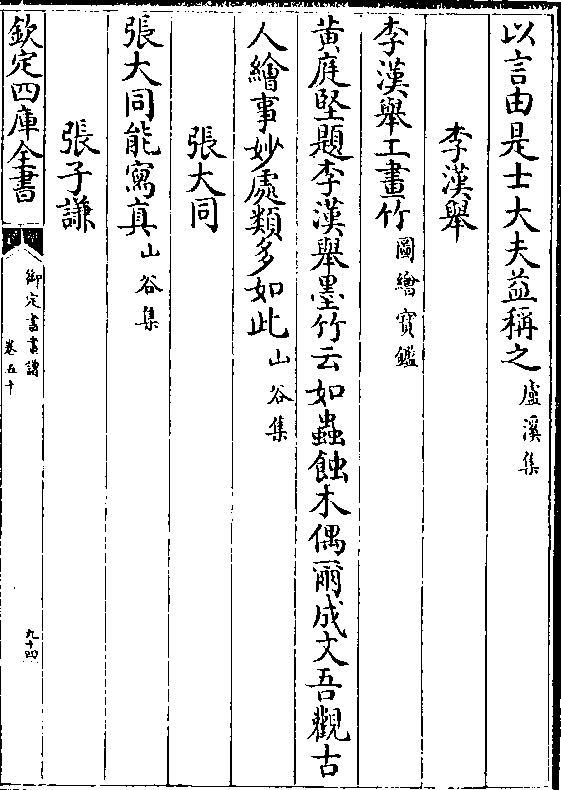 以言由是士大夫益稱之盧溪集
李漢舉
李漢舉工畫竹圖繪寶鑑
黃庭堅題李漢舉墨竹云如蟲蝕木偶爾成文吾觀古
人繪事妙處類多如此山谷集
張大同
張大同能寫真山谷集
張子謙
欽定四庫全書
御定書畫譜
卷五十
九十四